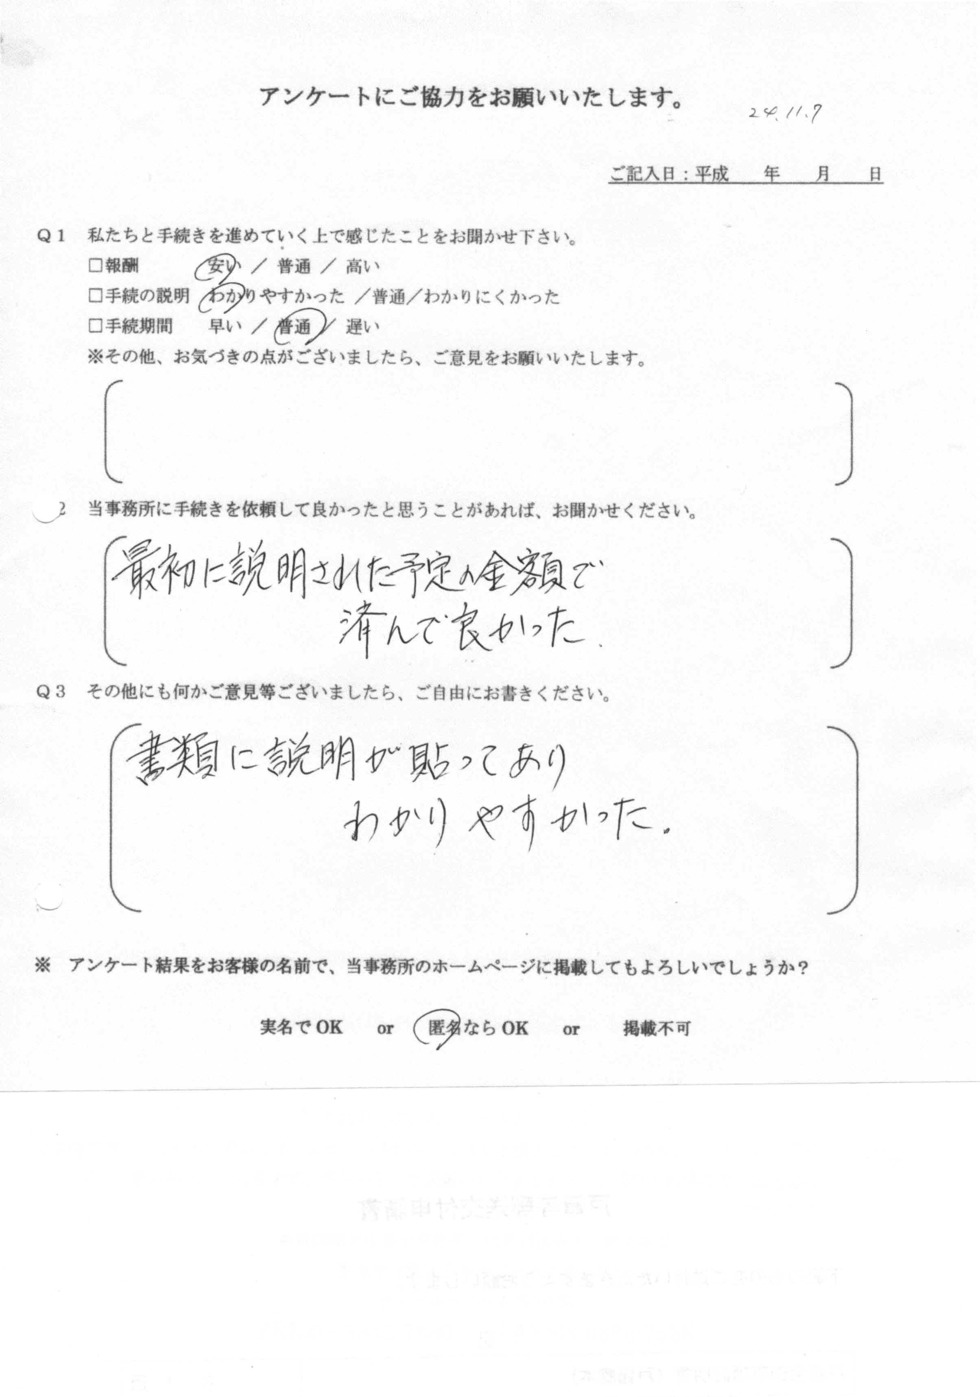 アンケートにご協力をお願いいたします。
24.11.7
ご記入日：平成　　年　　月　　日
Ｑ１　私たちと手続きを進めていく上で感じたことをお聞かせ下さい。
□報酬　　　安い ／ 普通 ／ 高い
□手続の説明　わかりやすかった ／普通／わかりにくかった
□手続期間　　早い ／ 普通 ／ 遅い
※その他、お気づきの点がございましたら、ご意見をお願いいたします。
2　当事務所に手続きを依頼して良かったと思うことがあれば、お聞かせください。
最初に説明された予定の金額で
済んで良かった.
Ｑ３　その他にも何かご意見等ございましたら、ご自由にお書きください。
書類に説明が貼ってあり
わかりやすかった。
※　アンケート結果をお客様の名前で、当事務所のホームページに掲載してもよろしいでしょうか？
実名でOK　　or　　匿名ならOK　　or　　掲載不可